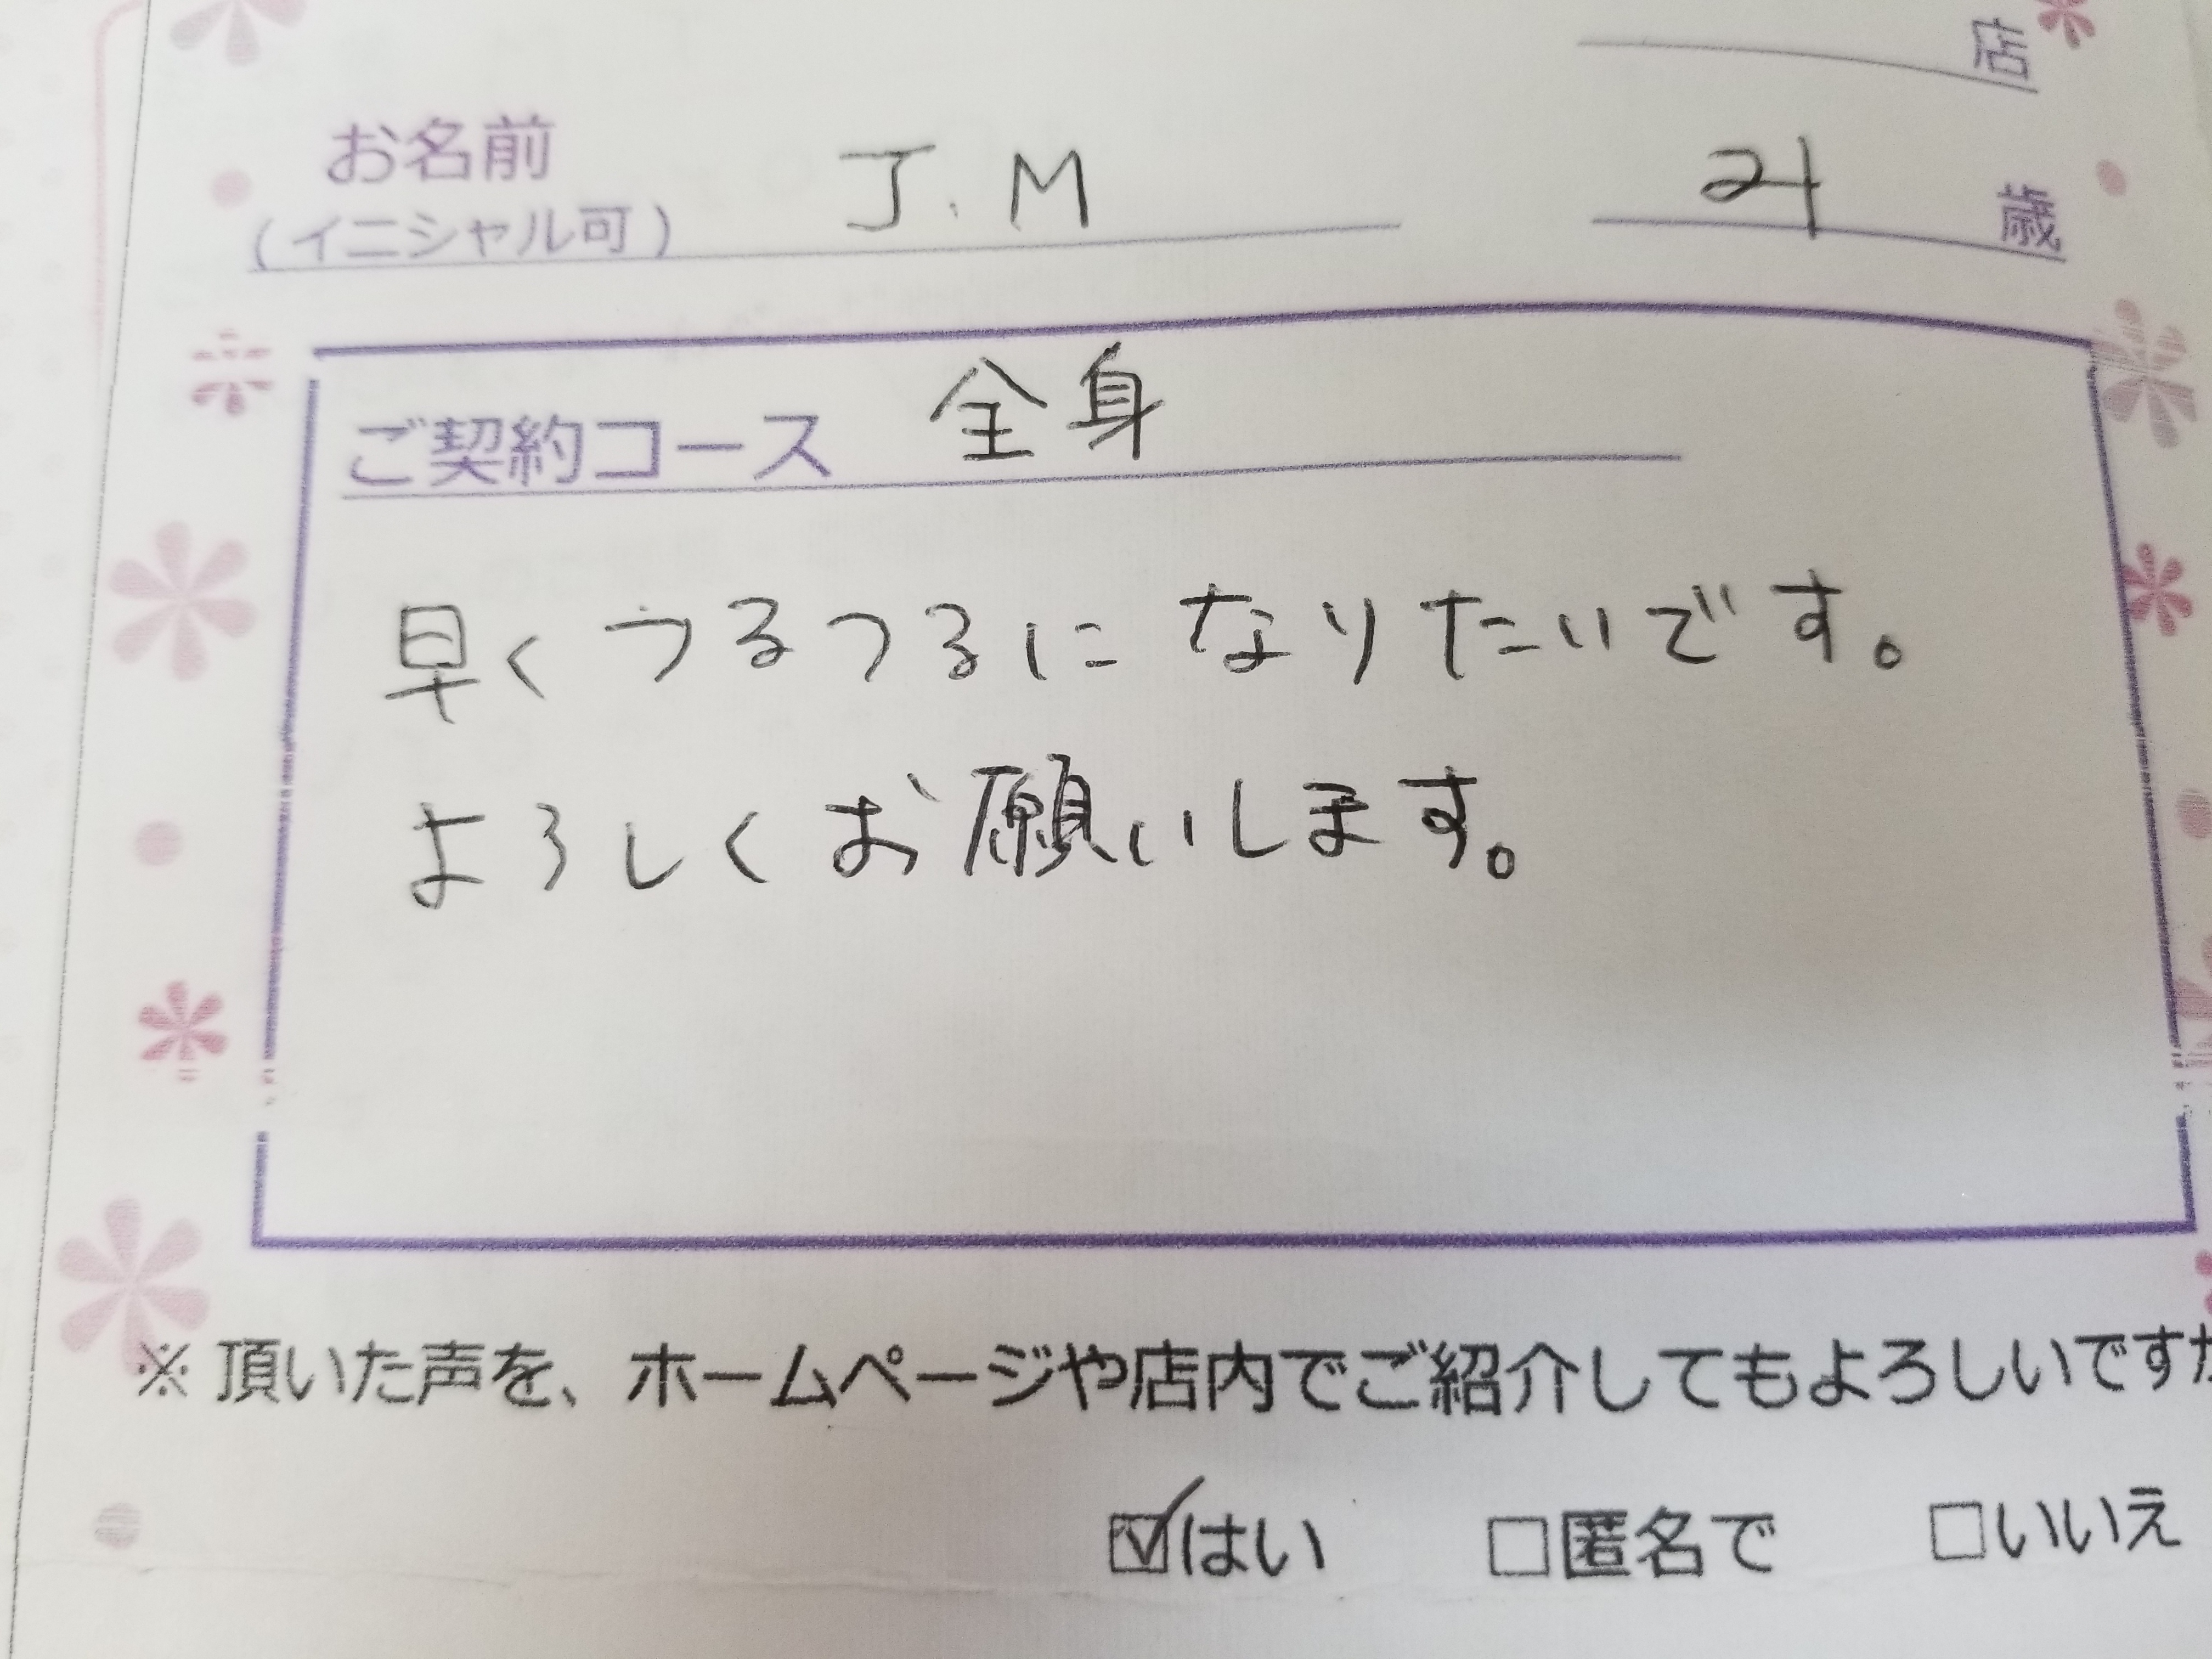 店
お名前 J.M 21 歳
(イニシャル可)
ご契約コース 全身
早くつるつるになりたいです。
よろしくお願いします。
※頂いた声を、ホームページや店内でご紹介してもよろしいですか
☑はい □匿名で □いいえ